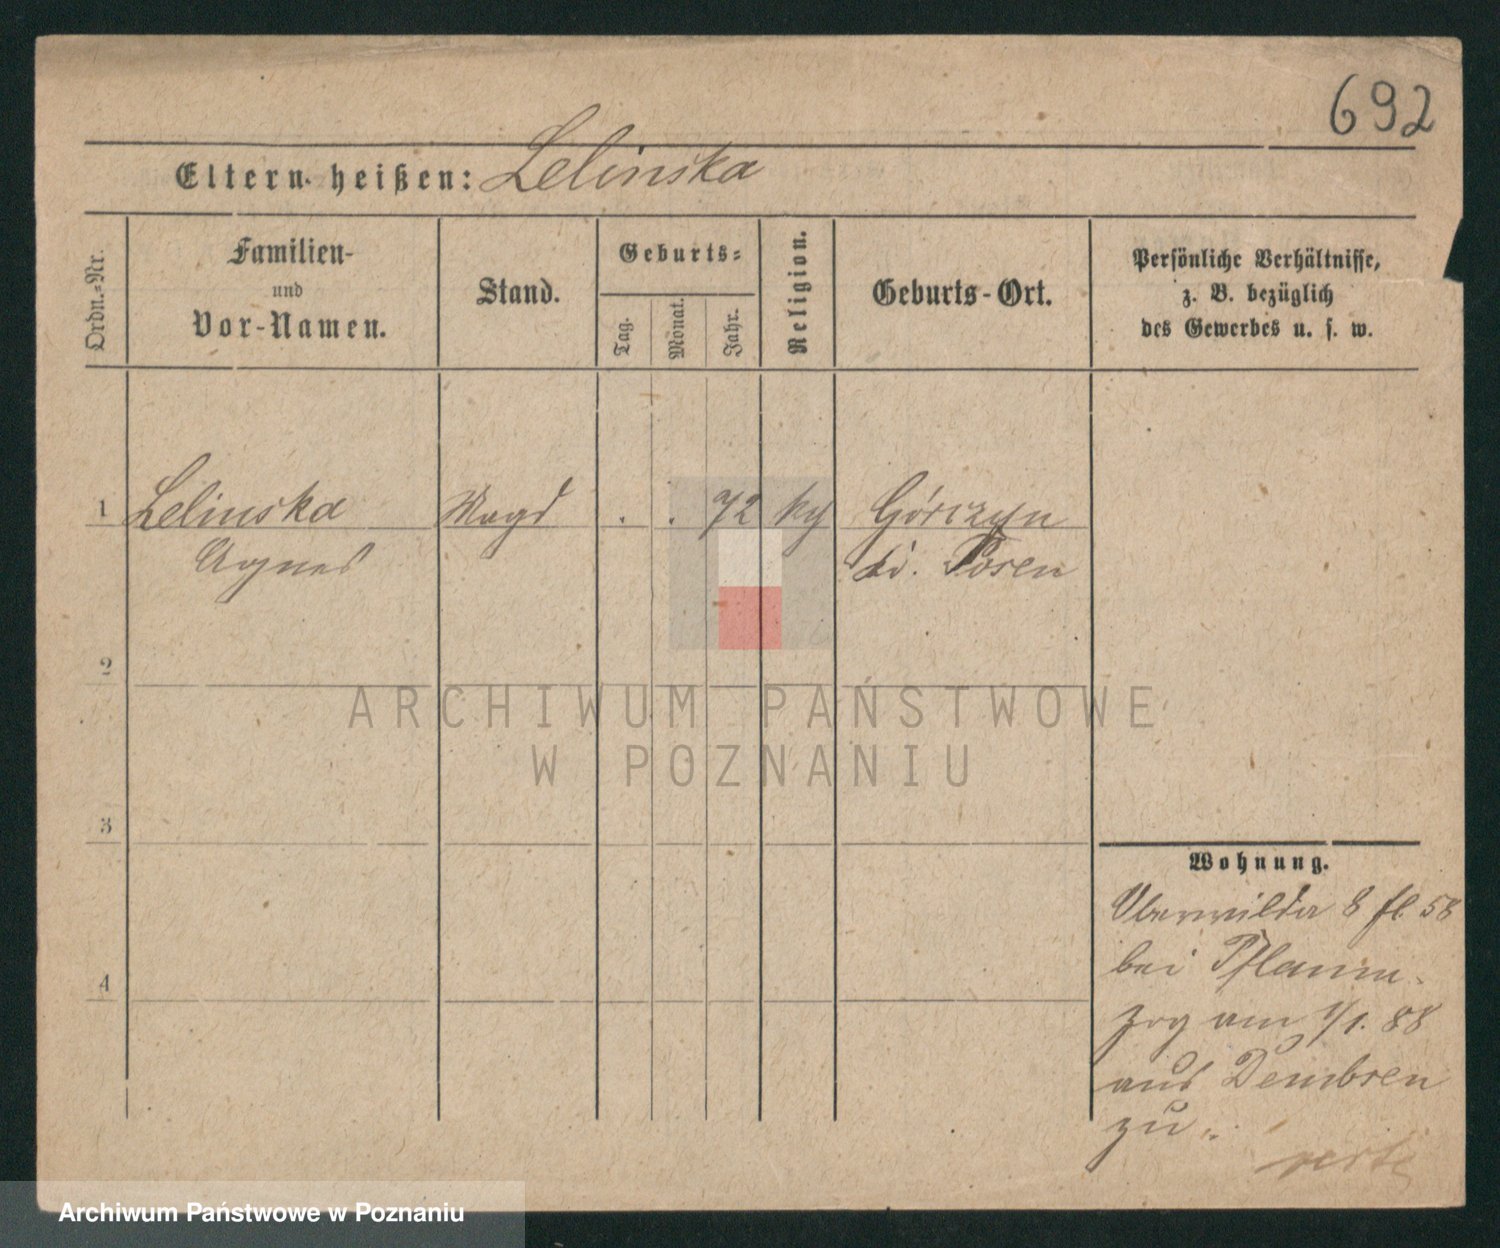 692
Eltern heißen: Lelinska
Ordn.-Nr.
Familien-
und
Vor-Namen.
Stand.
Geburts-
Tag.
Monat.
Jahr.
Religion.
Geburts-Ort.
Persönliche Verhältnisse,
z. B. bezüglich
des Gewerbes u. s. w.
1 Lelinska Magd . . 72 Górczyn
Agnes Posen
2
3
4
Wohnung.
8 58
bei
zog am 1/1. 88
aus Dembsen
zu.
Archiwum Państwowe
w Poznaniu
ARCHIWUM PAŃSTWOWE
W POZNANIU